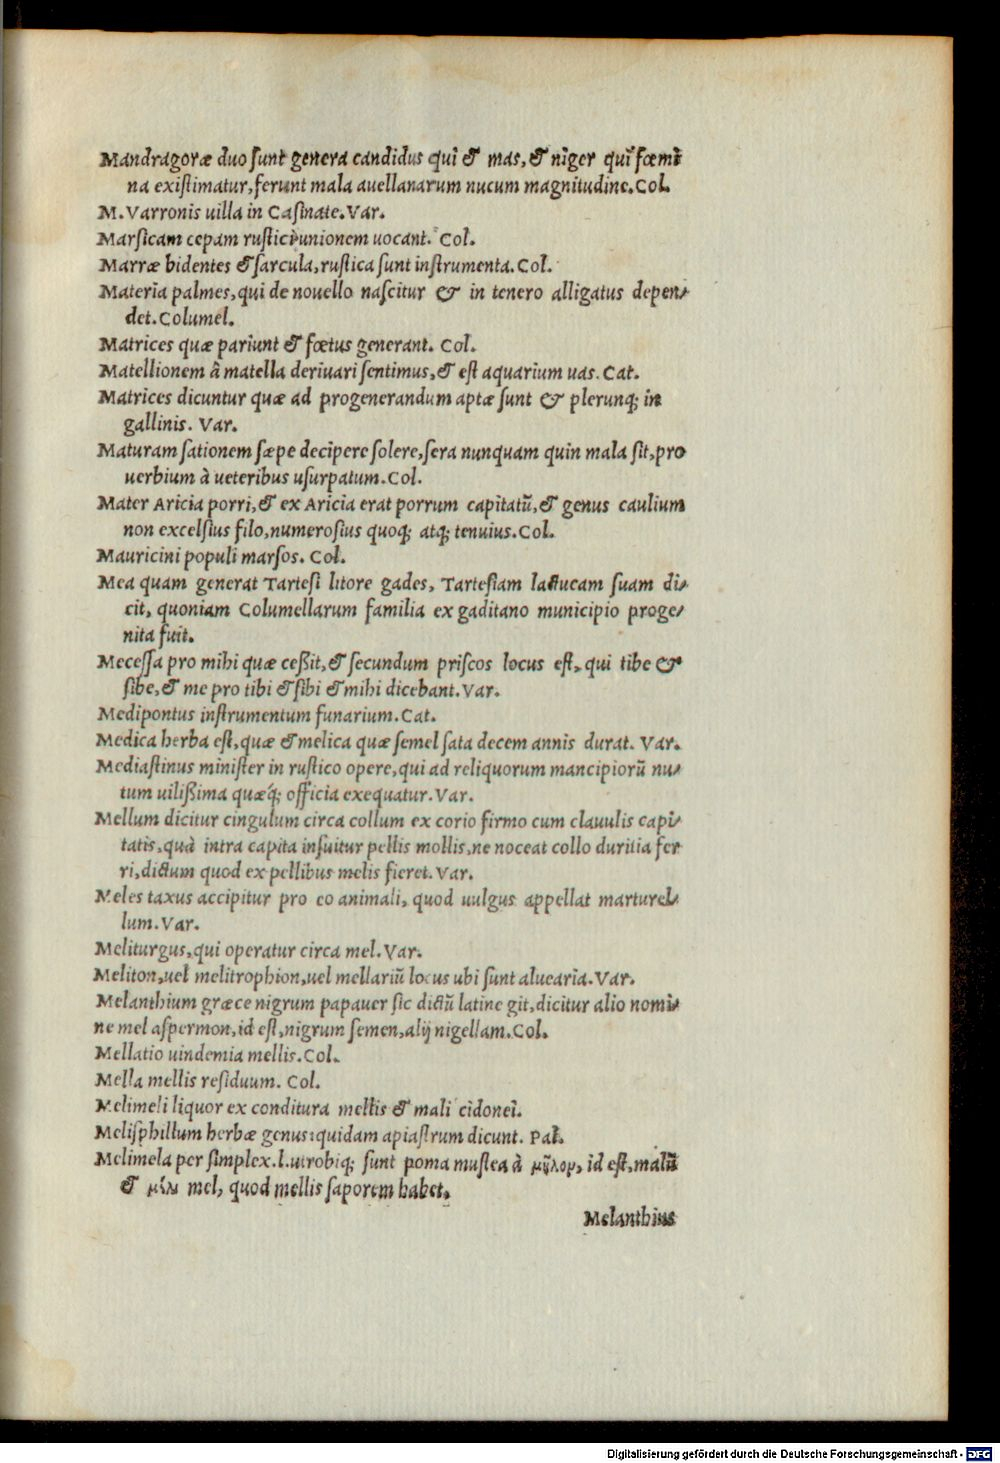 Mandragoræ duo sunt genera candidus qui & mas, & niger qui fœmi
na existimatur, ferunt mala auellanarum nucum magnitudine. Col.
M. Varronis uilla in Casinate. Var.
Marsicam cepam rustici unionem uocant. Col.
Marræ bidentes & sarcula, rustica sunt instrumenta. Col.
Materia palmes, qui de nouello nascitur & in tenero alligatus depen-
det. Columel.
Matrices quæ pariunt & fœtus generant. Col.
Matellionem à matella deriuari sentimus, & est aquarium uas. Cat.
Matrices dicuntur quæ ad progenerandum aptæ sunt & plerunq; in
gallinis. Var.
Maturam sationem sæpe decipere solere, sera nunquam quin mala sit, pro
uerbium à ueteribus usurpatum. Col.
Mater Aricia porri, & ex Aricia erat porrum capitatũ, & genus caulium
non excelsius filo, numerosius quoq; atq; tenuius. Col.
Mauricini populi marsos. Col.
Mea quam generat Tartesi litore gades, Tartesiam lactucam suam di-
cit, quoniam Columellarum familia ex gaditano municipio proge-
nita fuit.
Mecessa pro mihi quæ ceßit, & secundum priscos locus est, qui tibe &
sibe, & me pro tibi & sibi & mihi dicebant. Var.
Medipontus instrumentum funarium. Cat.
Medica herba est, quæ & melica quæ semel sata decem annis durat. Var.
Mediastinus minister in rustico opere, qui ad reliquorum mancipiorũ nu-
tum uilißima quæq; officia exequatur. Var.
Mellum dicitur cingulum circa collum ex corio firmo cum clauulis capi-
tatis, quà intra capita insuitur pellis mollis, ne noceat collo duritia fer
ri, dictum quod ex pellibus melis fieret. Var.
Meles taxus accipitur pro eo animali, quod uulgus appellat marturel-
lum. Var.
Meliturgus, qui operatur circa mel. Var.
Meliton, uel melitrophion, uel mellariũ locus ubi sunt aluearia. Var.
Melanthium græce nigrum papauer sic dictũ latine git, dicitur alio nomi-
ne mel aspermon, id est, nigrum semen, alij nigellam. Col.
Mellatio uindemia mellis. Col.
Mella mellis residuum. Col.
Melimeli liquor ex conditura mellis & mali cidonei.
Melisphillum herbæ genus: quidam apiastrum dicunt. Pal.
Melimela per simplex .l. utrobiq; sunt poma mustea à μῆλον, id est, malũ
& μέλι mel, quod mellis saporem habet.
Melanthius
Digitalisierung gefördert durch die Deutsche Forschungsgemeinschaft - DFG